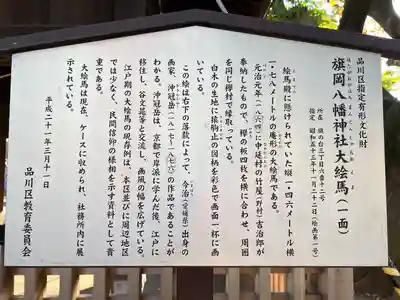 品川区指定有形文化財
旗岡八幡神社大絵馬（一面）
所在 旗の台三丁目六番十二号
指定 昭和五十三年十一月二十二日（絵画第一号）
絵馬殿に懸けられていた縦一・四六メートル横
一・七八メートルの庵形の大絵馬である。
元治元年（一八六四）中延村の竹屋（野村）吉治郎が
奉納したもので、欅の板四枚を横に合わせ、周囲
を同じ欅村で縁取っている。
白木の生地に猿駒止の図柄を彩色で画面一杯に画
いている。
この絵は右下の落款によって、今治（愛媛県）出身の
画家、沖冠岳（一八一七～一八七六）の作品であることが
わかる。沖冠岳は、京都で岸派に学んだ後、江戸に
移住し、谷文晁等と交流し、画風の幅を広げている。
江戸期の大絵馬の現存例は、本区並びに周辺地区
では少なく、民間信仰の様相を示す資料として貴
重である。
大絵馬は現在、ケースに収められ、社務所内に展
示されている。
平成二十一年三月十一日
品川区教育委員会